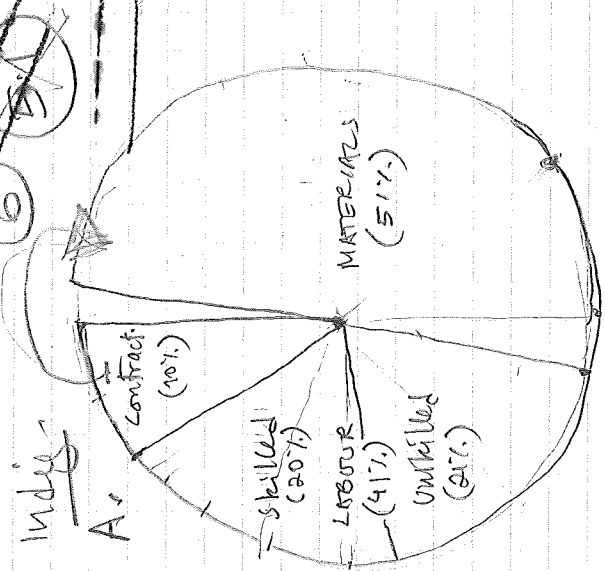 6
India
A.
Contract.
(10%)
Skilled
(20%)
LABOUR
(41%)
Unskilled
(21%)
MATERIALS
(51%)